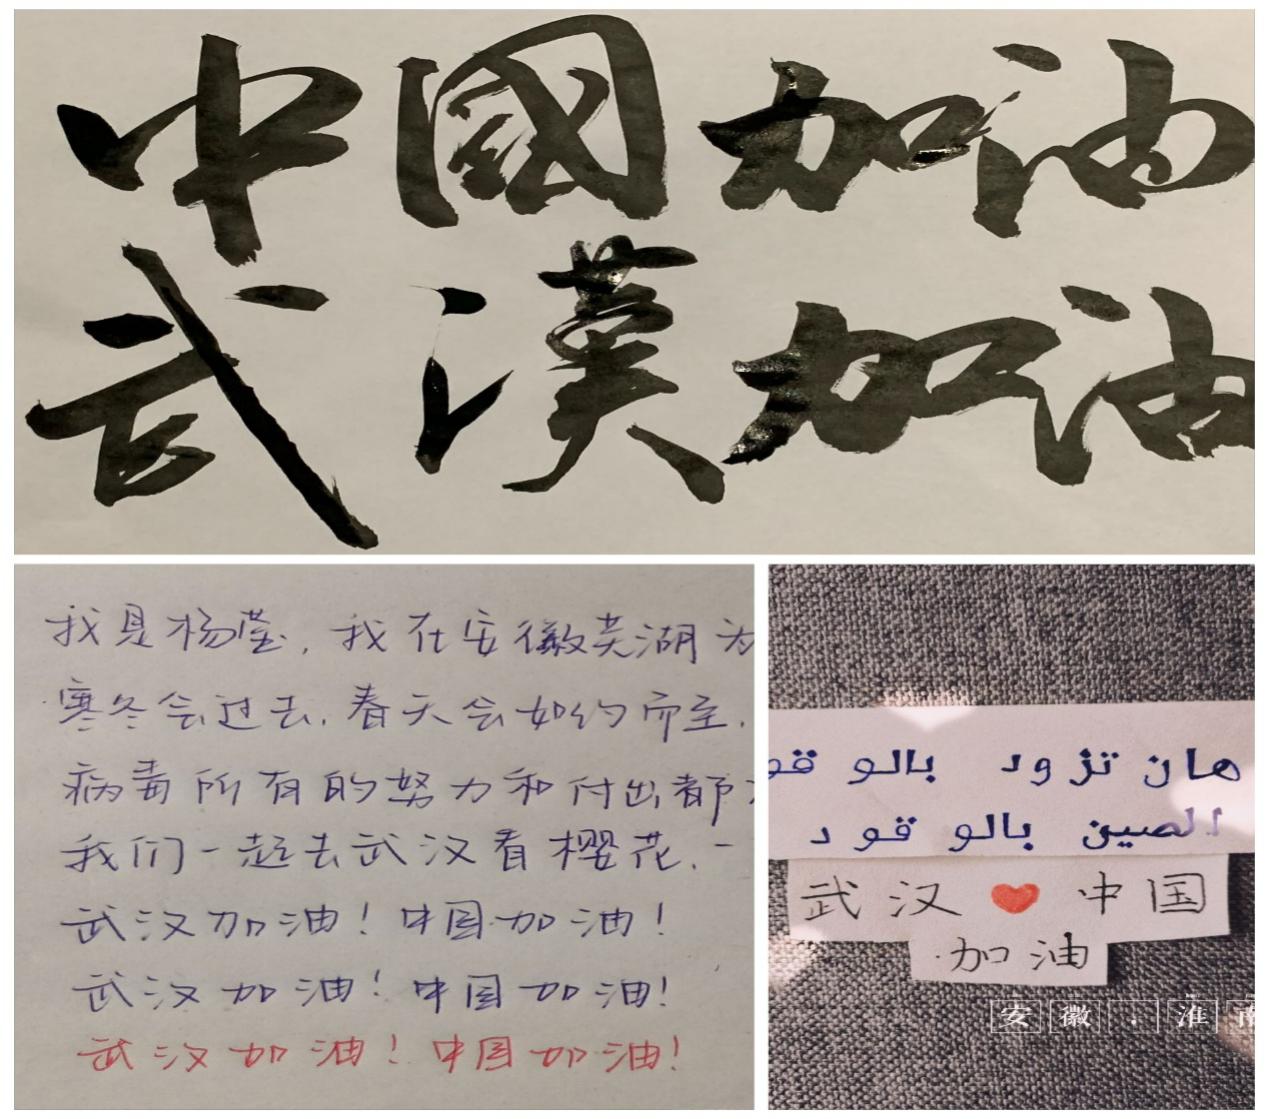 中國加油
武漢加油
我是杨莹，我在安徽芜湖为
寒冬会过去，春天会如约而至，
病毒所有的努力和付出都
我们一起去武汉看樱花，一
武汉加油！中国加油！
武汉加油！中国加油！
武汉加油！中国加油！
هان تزود بالو قو
الصين بالو قو د
武汉❤中国
加油
安徽·淮南